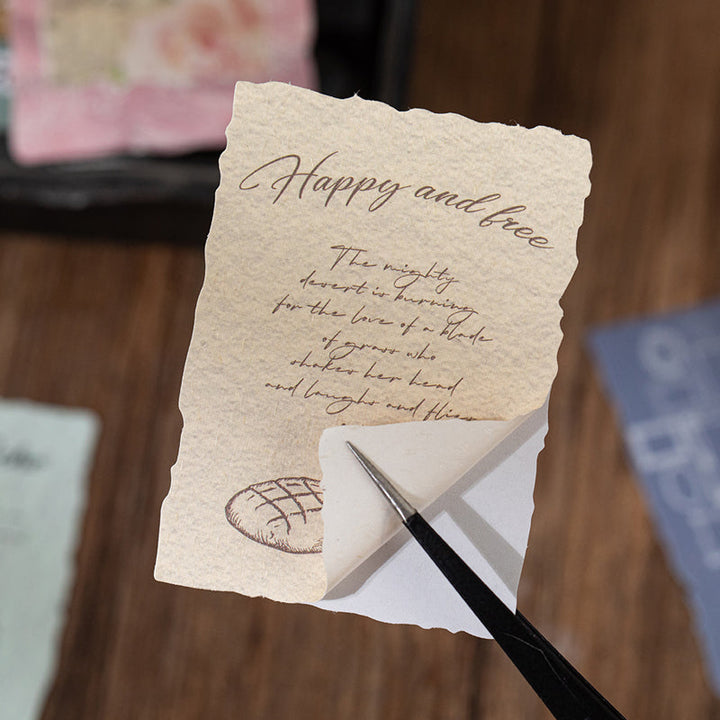 Happy and free
The mighty
desert is burning
for the love of a blade
of grass who
shakes her head
and laughs and flies